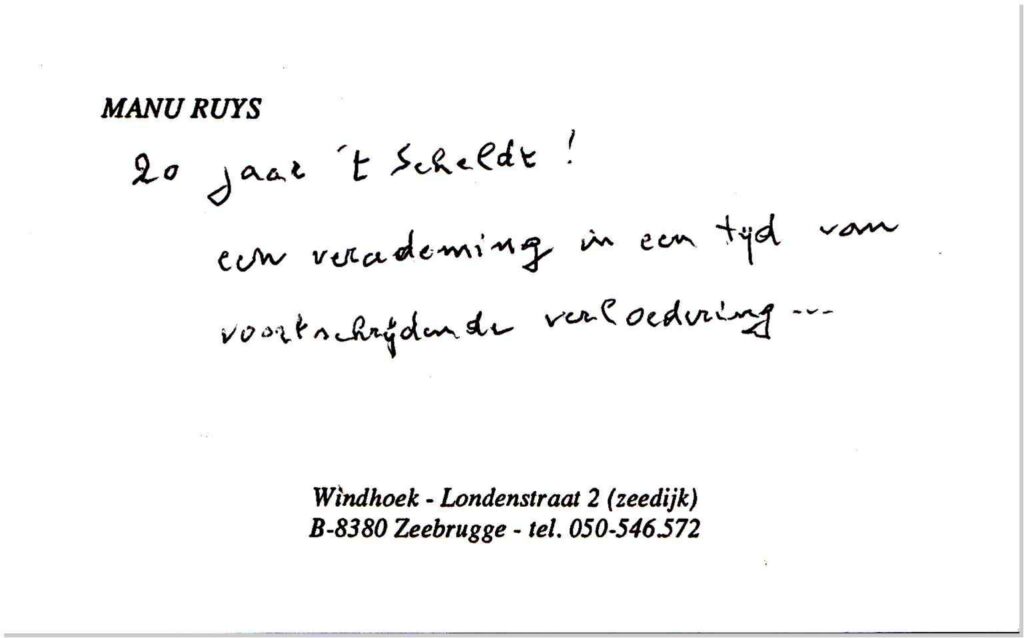 MANU RUYS
20 jaar 't Scheldt!
een verademing in een tijd van
voortschrijdende verloedering...
Windhoek - Londenstraat 2 (zeedijk)
B-8380 Zeebrugge - tel. 050-546.572